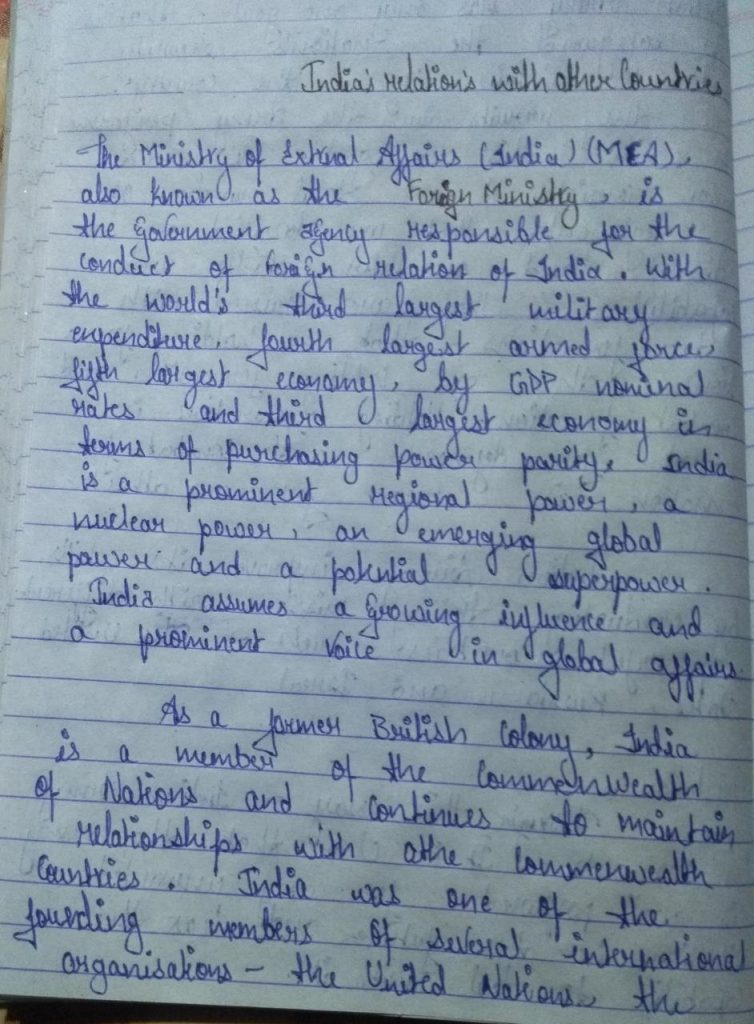 India's relation's with other Countries
The Ministry of External Affairs (India) (MEA),
also known as the Foreign Ministry, is
the government agency responsible for the
conduct of foreign relation of India. With
the world's third largest military
expenditure, fourth largest armed force,
fifth largest economy, by GDP nominal
rates and third largest economy in
terms of purchasing power parity, India
is a prominent regional power, a
nuclear power, an emerging global
power and a potential superpower.
India assumes a growing influence and
a prominent voice in global affairs.
As a former British Colony, India
is a member of the Commonwealth
of Nations and continues to maintain
relationships with othe Commenwealth
Countries. India was one of the
founding members of several international
organisations – the United Nations, the